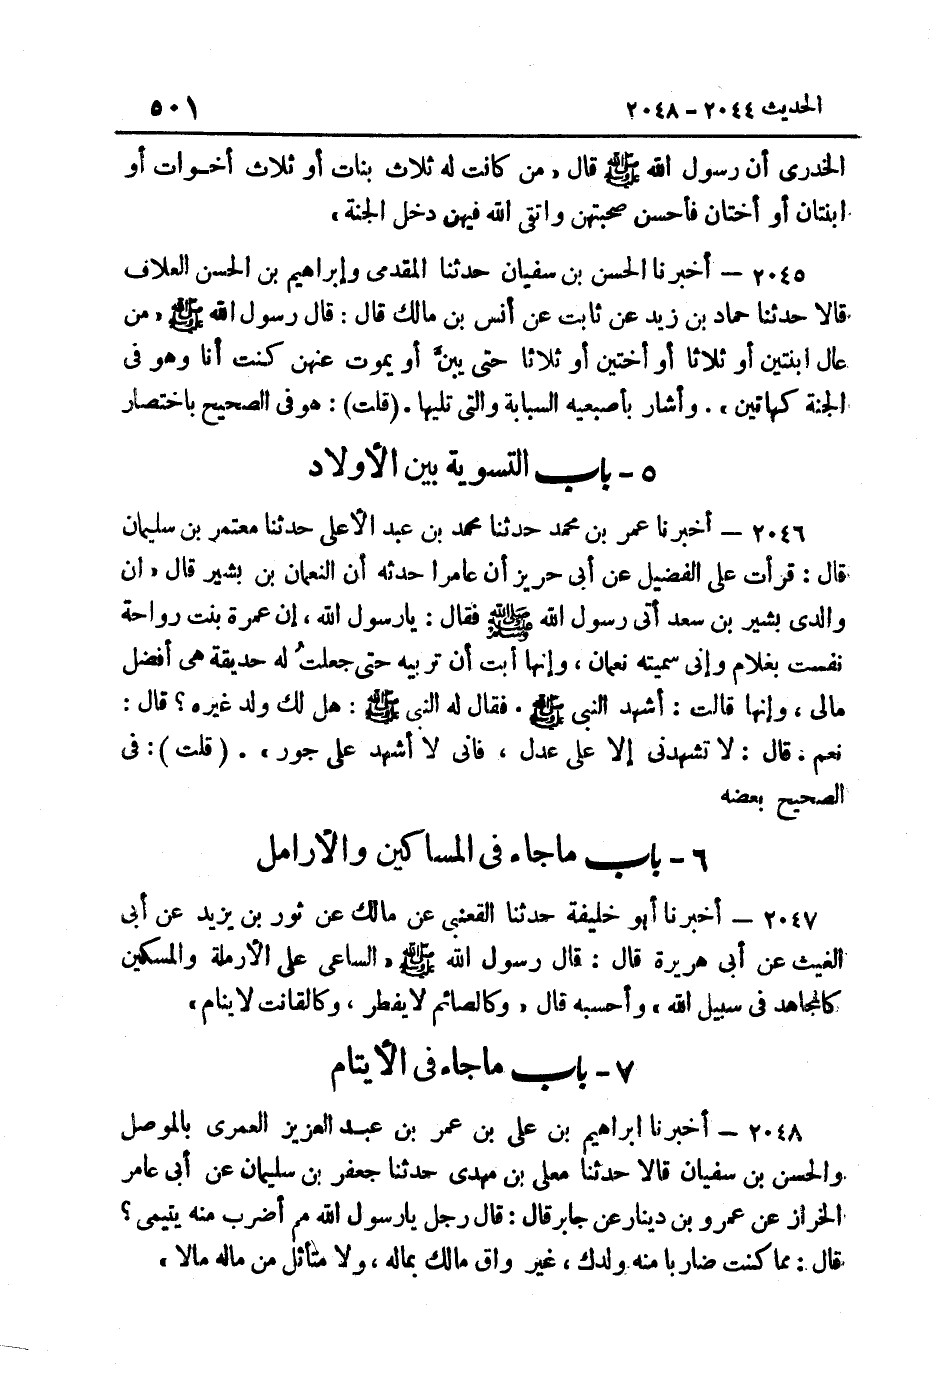 الحديث ٢٠٤٤ – ٢٠٤٨ ٥٠١
الخدرى أن رسول الله ﷺ قال «من كانت له ثلاث بنات أو ثلاث أخوات أو
ابنتان أو أختان فأحسن صحبتهن واتقى الله فيهن دخل الجنة»
٢٠٤٥ – أخبرنا الحسن بن سفيان حدثنا المقدمى وإبراهيم بن الحسن العلاف
قالا حدثنا حماد بن زيد عن ثابت عن أنس بن مالك قال : قال رسول الله ﷺ «من
عال ابنتين أو ثلاثا أو أختين أو ثلاثا حتى يبنَّ أو يموت عنهن كنت أنا وهو فى
الجنة كهاتين» . وأشار بأصبعيه السبابة والتى تليها . (قلت) : هو فى الصحيح باختصار
٥ – باب التسوية بين الأولاد
٢٠٤٦ – أخبرنا عمر بن محمد حدثنا محمد بن عبد الأعلى حدثنا معتمر بن سليمان
قال : قرأت على الفضيل عن أبى حريز أن عامرا حدثه أن النعمان بن بشير قال «ان
والدى بشير بن سعد أتى رسول الله ﷺ فقال : يارسول الله ، إن عمرة بنت رواحة
نفست بغلام وإنى سميته نعمان ، وإنها أبت أن تربيه حتى جعلتُ له حديقة هى أفضل
مالى ، وإنها قالت : أشهد النبى ﷺ . فقال له النبى ﷺ : هل لك ولد غيره ؟ قال :
نعم . قال : لا تشهدنى إلا على عدل ، فانى لا أشهد على جور» . (قلت) : فى
الصحيح بعضه
٦ – باب ماجاء فى المساكين والأرامل
٢٠٤٧ – أخبرنا أبو خليفة حدثنا القعنبى عن مالك عن ثور بن يزيد عن أبى
الغيث عن أبى هريرة قال : قال رسول الله ﷺ «الساعى على الأرملة والمسكين
كالمجاهد فى سبيل الله» وأحسبه قال «وكالصائم لايفطر ، وكالقانت لاينام»
٧ – باب ماجاء فى الأيتام
٢٠٤٨ – أخبرنا ابراهيم بن على بن عمر بن عبد العزيز العمرى بالموصل
والحسن بن سفيان قالا حدثنا معلى بن مهدى حدثنا جعفر بن سليمان عن أبى عامر
الخراز عن عمرو بن دينار عن جابر قال : قال رجل يارسول الله مم أضرب منه يتيمى ؟
قال : مما كنت ضاربا منه ولدك ، غير واق مالك بماله ، ولا متأثل من ماله مالا »